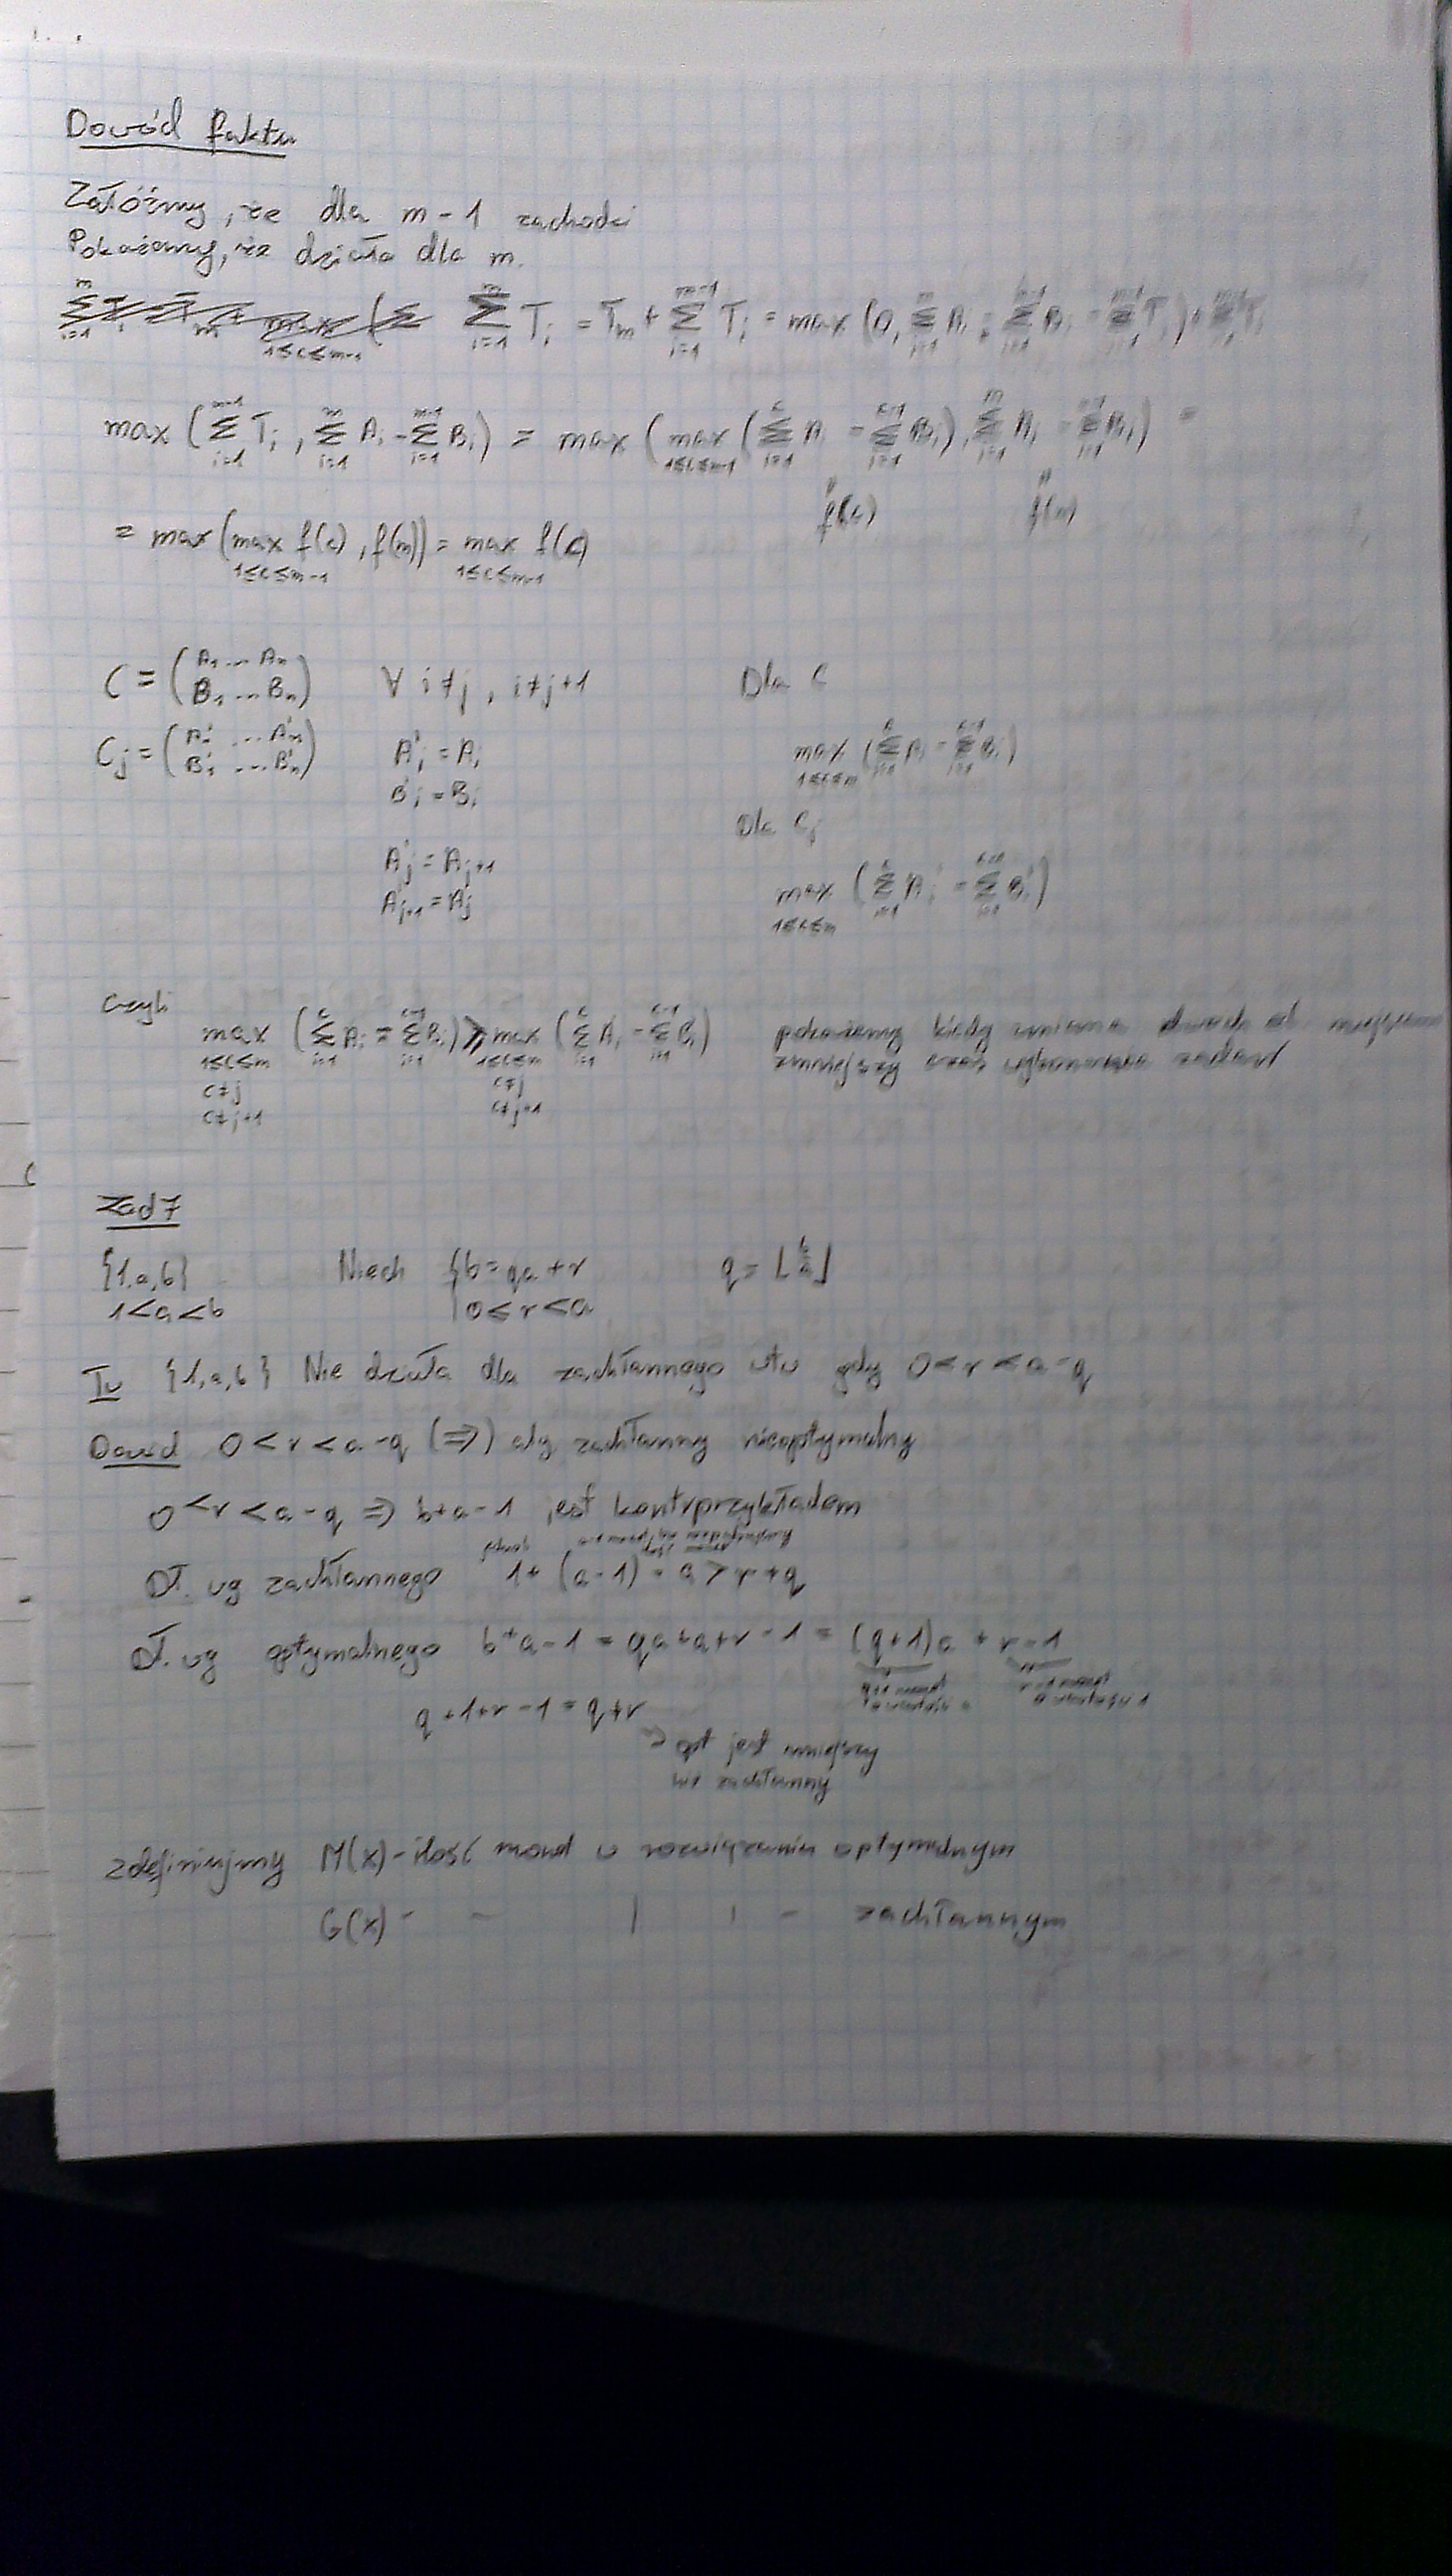 Dowód faktu
Załóżmy, że dla m-1 zachodzi
Pokażemy, że działa dla m.
∑_{i=1}^{m} T_i = T_m + ∑_{i=1}^{m-1} T_i = max (0, ∑_{i=1}^{m} A_i - ∑_{i=1}^{m-1} B_i - ∑_{i=1}^{m-1} T_i) + ∑_{i=1}^{m-1} T_i
max (∑_{i=1}^{m-1} T_i , ∑_{i=1}^{m} A_i - ∑_{i=1}^{m-1} B_i) = max (max_{1≤c≤m-1} (∑_{i=1}^{c} A_i - ∑_{i=1}^{c-1} B_i), ∑_{i=1}^{m} A_i - ∑_{i=1}^{m-1} B_i) =
f(c) f(m)
= max (max_{1≤c≤m-1} f(c) , f(m)) = max_{1≤c≤m-1} f(c)
C = (A_1 ... A_n / B_1 ... B_n) ∀ i≠j , i≠j+1 Dla C
C_j = (A'_1 ... A'_n / B'_1 ... B'_n) A'_i = A_i max_{1≤c≤m} (∑_{i=1}^{c} A_i - ∑_{i=1}^{c-1} B_i)
B'_i = B_i
Dla C_j
A'_j = A_{j+1} max_{1≤c≤m} (∑_{i=1}^{c} A'_i - ∑_{i=1}^{c-1} B'_i)
A'_{j+1} = A_j
Czyli
max_{1≤c≤m, c≠j, c≠j+1} (∑_{i=1}^{c} A_i - ∑_{i=1}^{c-1} B_i) ≥ max_{1≤c≤m, c≠j, c≠j+1} (∑_{i=1}^{c} A_i - ∑_{i=1}^{c-1} B_i) pokażemy kiedy zmiana dwóch
zmniejszy czas wykonania
Zad 7
{1,a,b} Niech {b = qa + r q = ⌊b/a⌋
1<a<b 0≤r<a
Tw {1,a,b} Nie działa dla zachłannego wtw gdy 0<r<a-q
Dowód 0<r<a-q (⇒) alg zachłanny nieoptymalny
0<r<a-q ⇒ b+a-1 jest kontrprzykładem
Dł. wg zachłannego 1+(a-1) = a > r+q
Dł. wg optymalnego b+a-1 = qa+a+r-1 = (q+1)a + r-1
q+1 monet o wartości a r-1 monet o wartości 1
q+1+r-1 = q+r
opt jest mniejszy
niż zachłanny
zdefiniujmy M(x) - ilość monet w rozwiązaniu optymalnym
G(x) - - | | - zachłannym